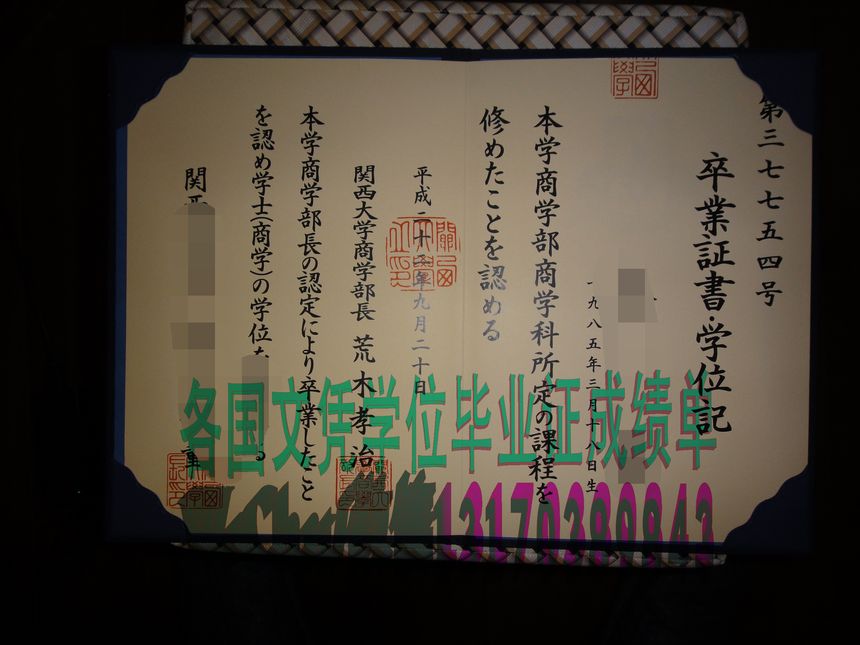 第三七七五四号
卒業証書・学位記
一九八五年三月十八日生
本学商学部商学科所定の課程を
修めたことを認める
平成二十四年九月二十日
関西大学商学部長 荒木孝治
本学商学部長の認定により卒業したこと
を認め学士(商学)の学位を
る
関西
各国文凭学位毕业证成绩单
13170389843